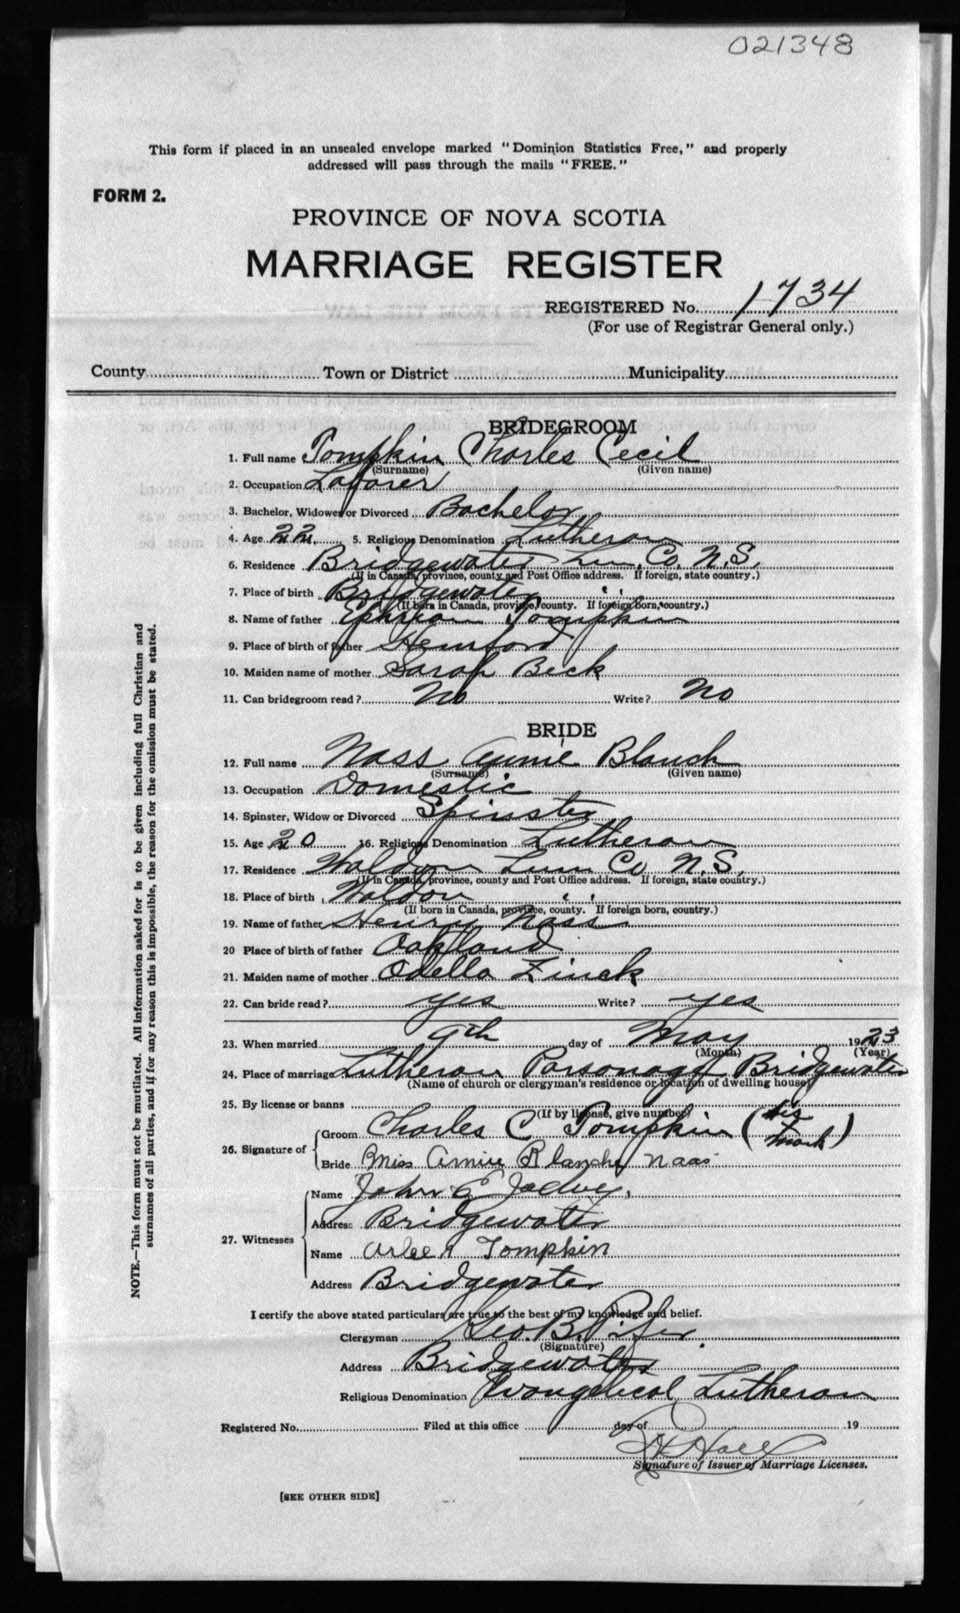 021348
This form if placed in an unsealed envelope marked "Dominion Statistics Free," and properly
addressed will pass through the mails "FREE."
FORM 2.
PROVINCE OF NOVA SCOTIA
MARRIAGE REGISTER
REGISTERED No. 1734
(For use of Registrar General only.)
County Town or District Municipality
BRIDEGROOM
1. Full name Tompkin Charles Cecil
(Surname) (Given name)
2. Occupation Laborer
3. Bachelor, Widower or Divorced Bachelor
4. Age 22 5. Religious Denomination Lutheran
6. Residence Bridgewater Lun. Co. N.S.
(If in Canada, province, county and Post Office address. If foreign, state country.)
7. Place of birth Bridgewater " "
(If born in Canada, province, county. If foreign born, country.)
8. Name of father Ephriam Tompkin
9. Place of birth of father Hemford
10. Maiden name of mother Sarah Beck
11. Can bridegroom read? No Write? No
BRIDE
12. Full name Nass Annie Blanch
(Surname) (Given name)
13. Occupation Domestic
14. Spinster, Widow or Divorced Spinster
15. Age 20 16. Religious Denomination Lutheran
17. Residence Waldon Lun Co N.S.
(If in Canada, province, county and Post Office address. If foreign, state country.)
18. Place of birth Waldon " "
(If born in Canada, province, county. If foreign born, country.)
19. Name of father Henry Nass
20 Place of birth of father Oakland
21. Maiden name of mother Odella Zinck
22. Can bride read? yes Write? yes
23. When married 9th day of May 1923
(Month) (Year)
24. Place of marriage Lutheran Parsonage Bridgewater
(Name of church or clergyman's residence or location of dwelling house)
25. By license or banns
(If by license, give number)
26. Signature of Groom Charles C Tompkin (his mark)
Bride Miss Annie Blanche Naas
27. Witnesses Name John E
Address Bridgewater
Name Tompkin
Address Bridgewater
I certify the above stated particulars are true to the best of my knowledge and belief.
Clergyman Geo. B.
(Signature)
Address Bridgewater
Religious Denomination Evangelical Lutheran
Registered No. Filed at this office day of 19
Signature of Issuer of Marriage Licenses.
[SEE OTHER SIDE]
NOTE.—This form must not be mutilated. All information asked for is to be given including full Christian and
surnames of all parties, and if for any reason this is impossible, the reason for the omission must be stated.